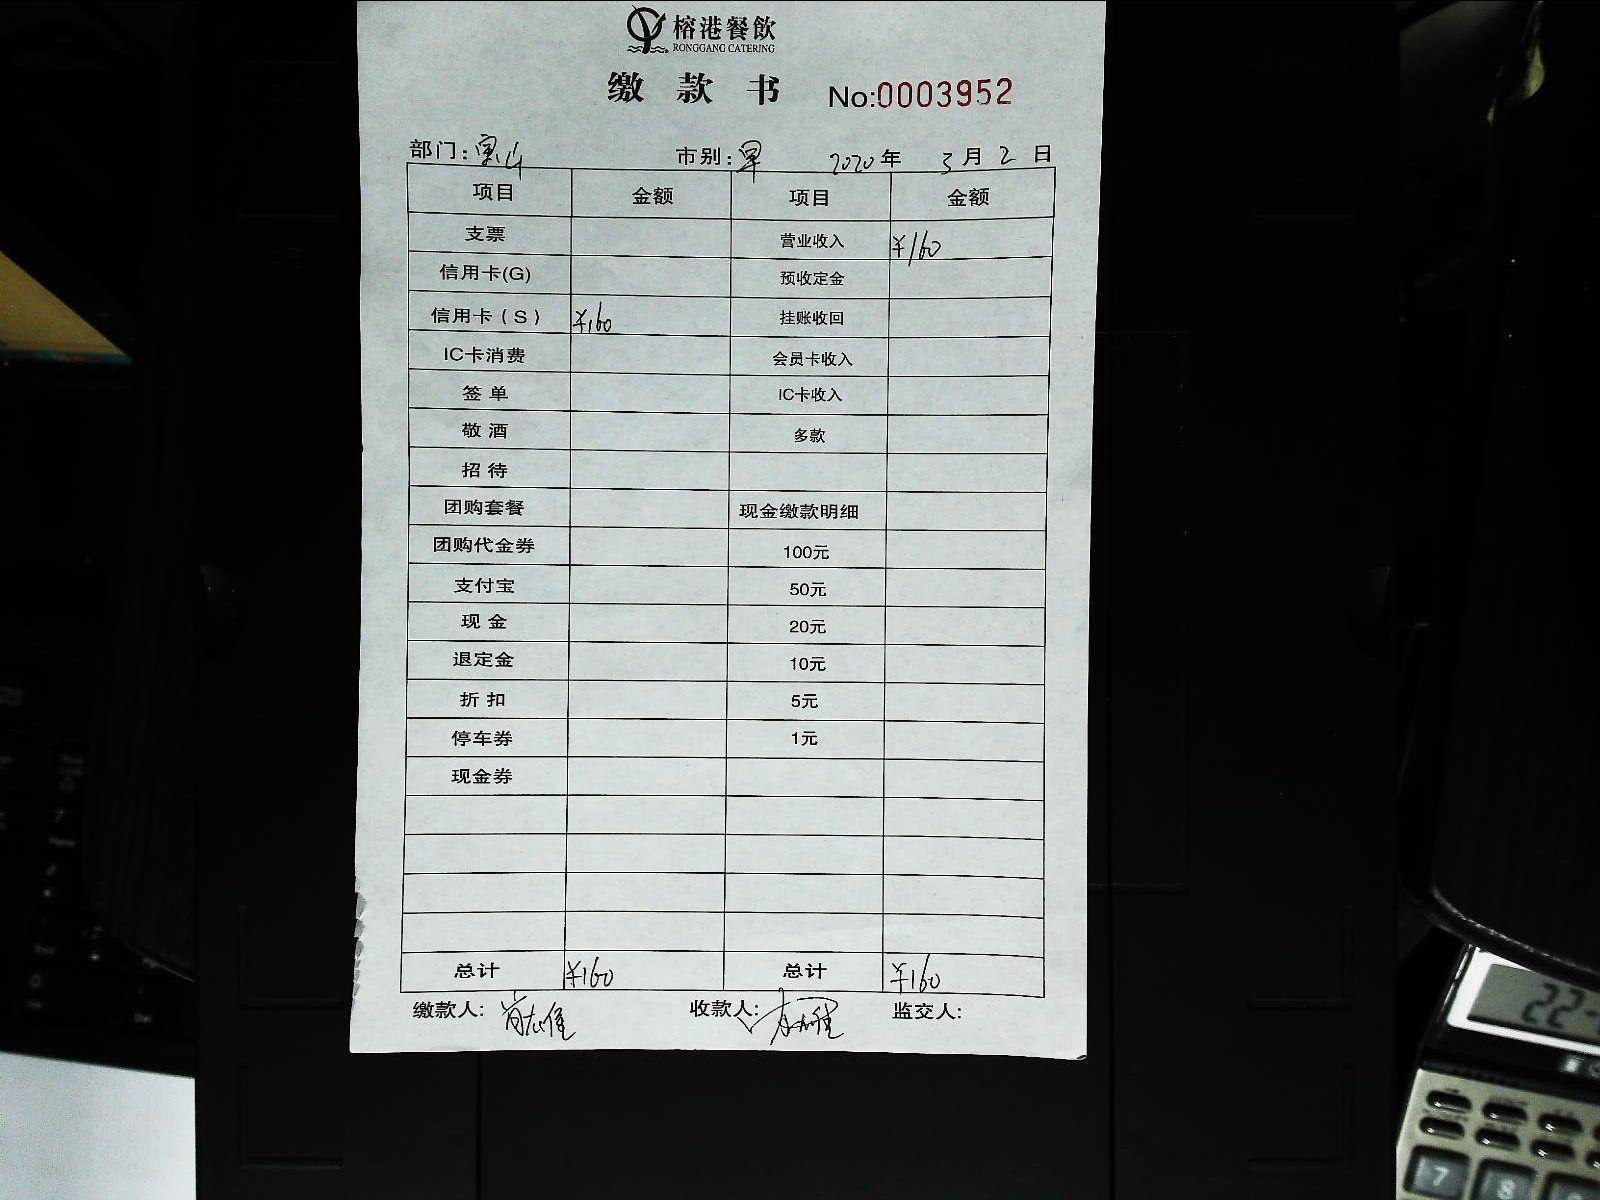 榕港餐飲
RONGGANG CATERING
缴款书 No:0003952
部门:宝山 市别:早 2020年 3月 2日
项目 金额 项目 金额
支票 营业收入 ¥160
信用卡(G) 预收定金
信用卡(S) ¥160 挂账收回
IC卡消费 会员卡收入
签单 IC卡收入
敬酒 多款
招待
团购套餐 现金缴款明细
团购代金券 100元
支付宝 50元
现金 20元
退定金 10元
折扣 5元
停车券 1元
现金券
总计 ¥160 总计 ¥160
缴款人: 收款人: 监交人: